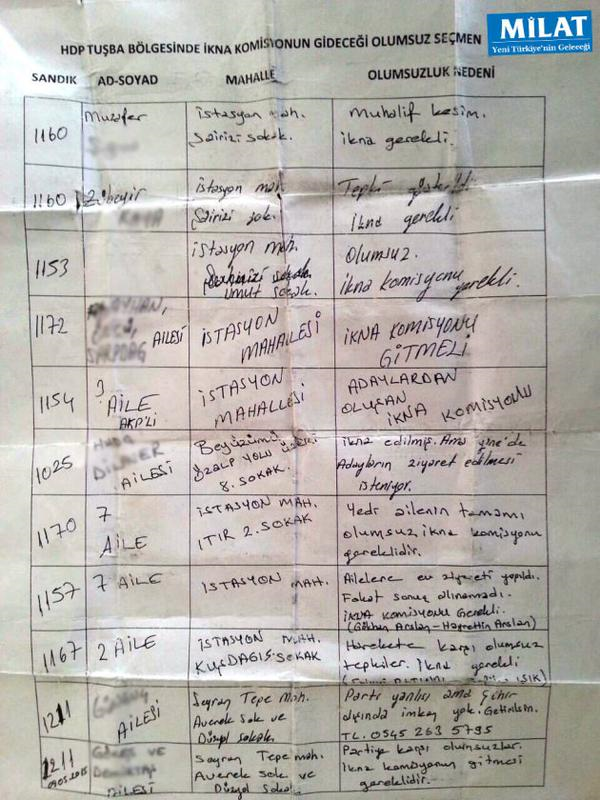 MİLAT
Yeni Türkiye'nin Geleceği
HDP TUŞBA BÖLGESİNDE İKNA KOMİSYONUN GİDECEĞİ OLUMSUZ SEÇMEN
SANDIK AD-SOYAD MAHALLE OLUMSUZLUK NEDENİ
1160 Muzafer istasyon mah. Muhalif kesim.
Sairizi sokak. ikna gerekli.
1160 Zübeyir istasyon mah. Tepki
Sairizi sok. ikna gerekli
1153 istasyon mah. Olumsuz.
umut sokak. ikna komisyonu gerekli.
1172 AİLESİ İSTASYON MAHALLESİ İKNA KOMİSYONU
GİTMELİ
1154 ? İSTASYON ADAYLARDAN
AİLE MAHALLESİ OLUŞAN
AKP'Lİ İKNA KOMİSYONU
1025 AİLESİ Beyüzümü ikna edilmiş. Ama yine'de
ÖZALP YOLU ÜZERİ Adayların ziyaret edilmesi
8. SOKAK. isteniyor.
1170 7 İSTASYON MAH. Yedi ailenin tamamı
AİLE ITIR 2. SOKAK olumsuz ikna komisyonu
gereklidir.
1157 7 AİLE İSTASYON MAH. Ailelere ev ziyareti yapıldı.
Fakat sonuç alınamadı.
İKNA KOMİSYONU Gerekli.
(Gökhan Arslan-Hayrettin Arslan)
1167 2 AİLE İSTASYON MAH. Harekete karşı olumsuz
KUŞDAGIS. SOKAK tepkiler. İkna gerekli
IŞIK)
1211 AİLESİ Seyran Tepe Mah. Parti yanlısı ama şehir
Averek Sok ve dışında imkan yok. Getirilsin.
Düzyol sokak. TL. 0545 263 5795
1211 VE Seyran Tepe mah. Partiye karşı olumsuzlar.
09.05.2015 AİLESİ Averek sok. ve İkna komisyonun gitmesi
Düzyol Sokak gereklidir.